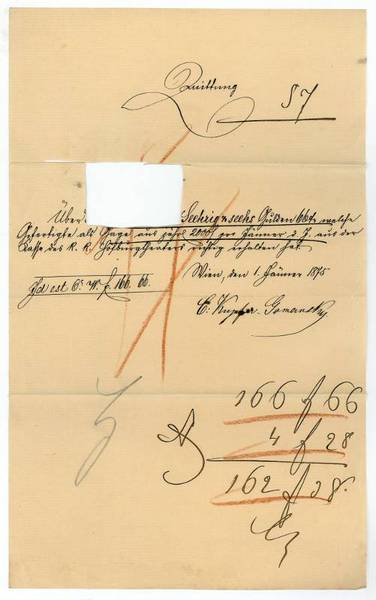 Quittung
57
Über Sechzig sechs Gulden 66 xr welche
Gefertigte als Gage aus jährl. 2000 f per Jänner d. J. aus der
Kasse des k. k. Hofburgtheaters richtig erhalten hat.
Wien, den 1. Jänner 1875
Id est Ö. W. f 166. 66.
E. Kupfer-Gomansky
166 f 66
4 f 28
162 f 38.